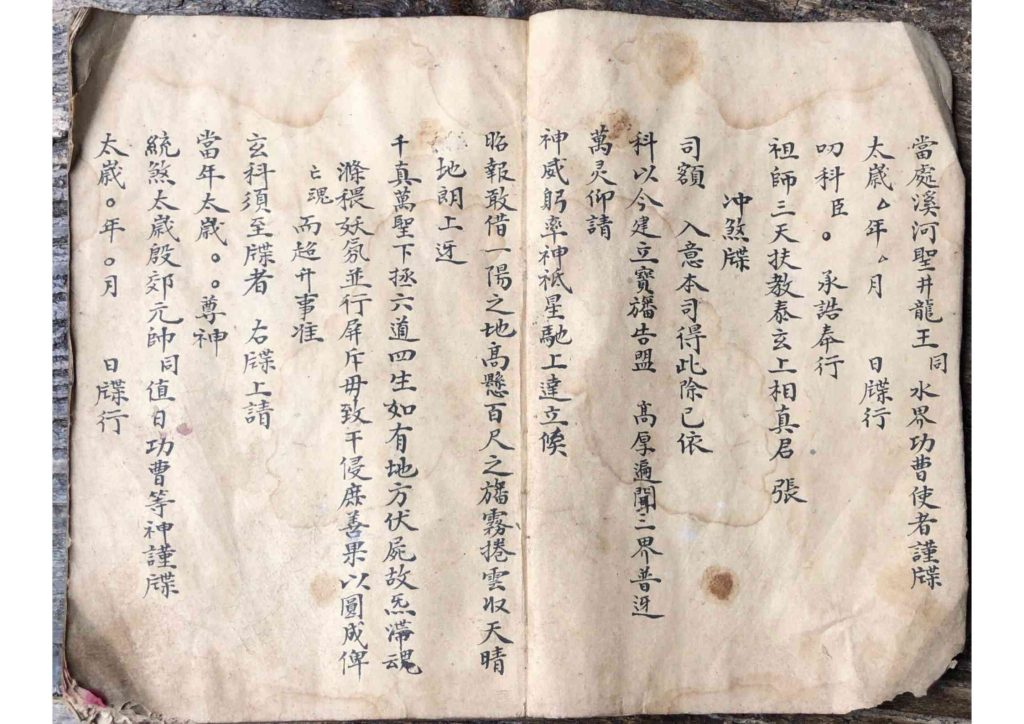 當處溪河聖井龍王同水界功曹使者謹牒
太歲△年△月 日牒行
叨科臣。 承誥奉行
祖師三天扶教泰玄上相真君 張
冲煞牒
司額 入意本司得此除已依
科以今建立寳旛告盟 高厚遍聞三界普迓
萬灵仰請
神威躬率神祇星馳上達立俟
昭報敢借一陽之地高懸百尺之旛霧捲雲収天晴
地朗上迓
千真萬聖下拯六道四生如有地方伏屍故炁滯魂
滌穢妖氛並行屏斥毋致干侵庶善果以圓成俾
亡魂而超升事准
玄科須至牒者 右牒上請
當年太歲。。尊神
統煞太歲殷郊元帥同值日功曹等神謹牒
太歲。年。月 日牒行